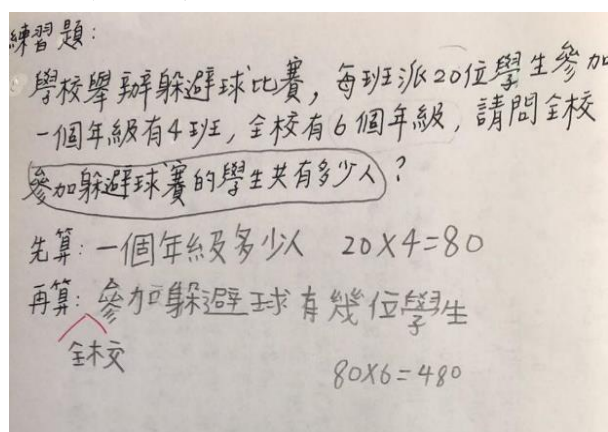 練習題:
學校舉辦躲避球比賽,每班派20位學生參加
一個年級有4班,全校有6個年級,請問全校
參加躲避球賽的學生共有多少人?
先算:一個年級多少人 20×4=80
再算:參加躲避球有幾位學生
全校
80×6=480